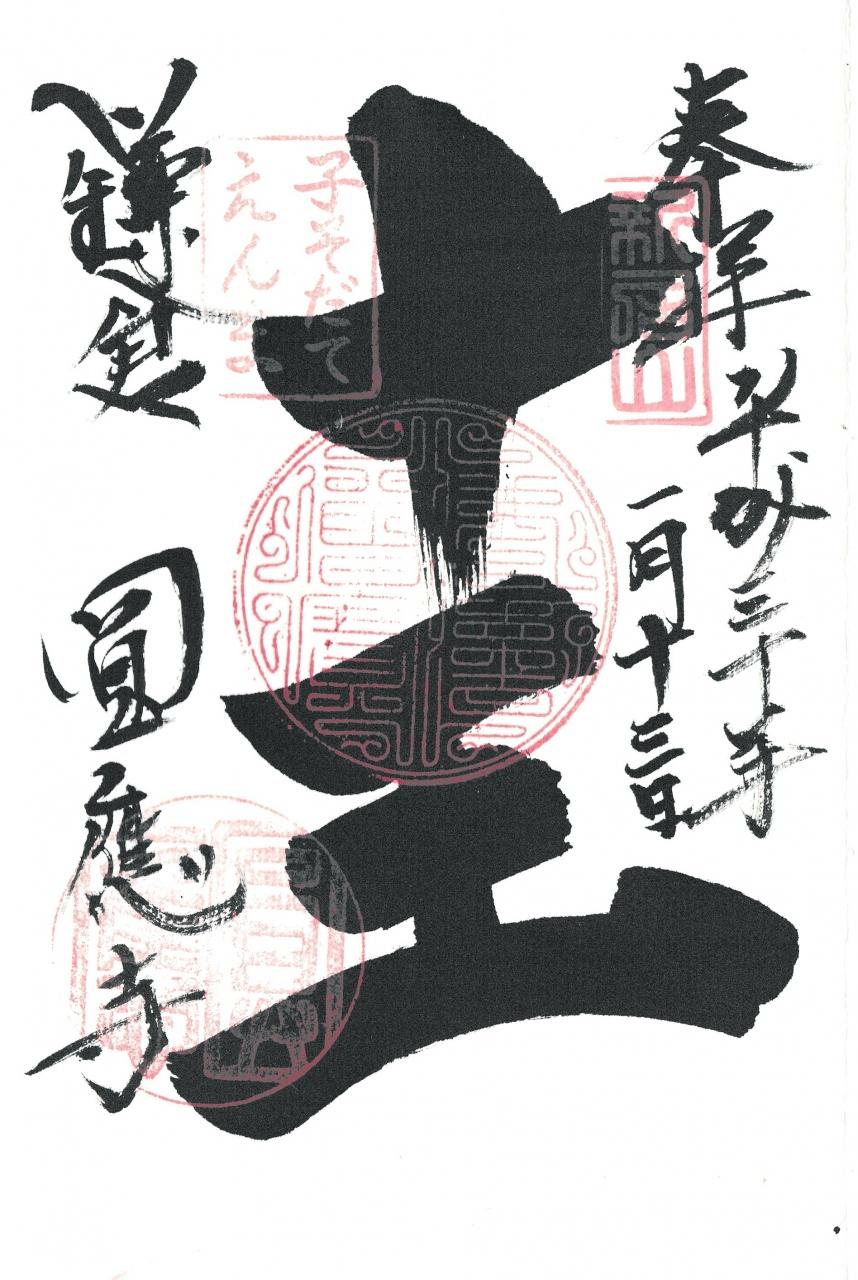 奉拝
平成三十年
一月十三日
十王
子そだて
えんま
鎌倉
圓應寺